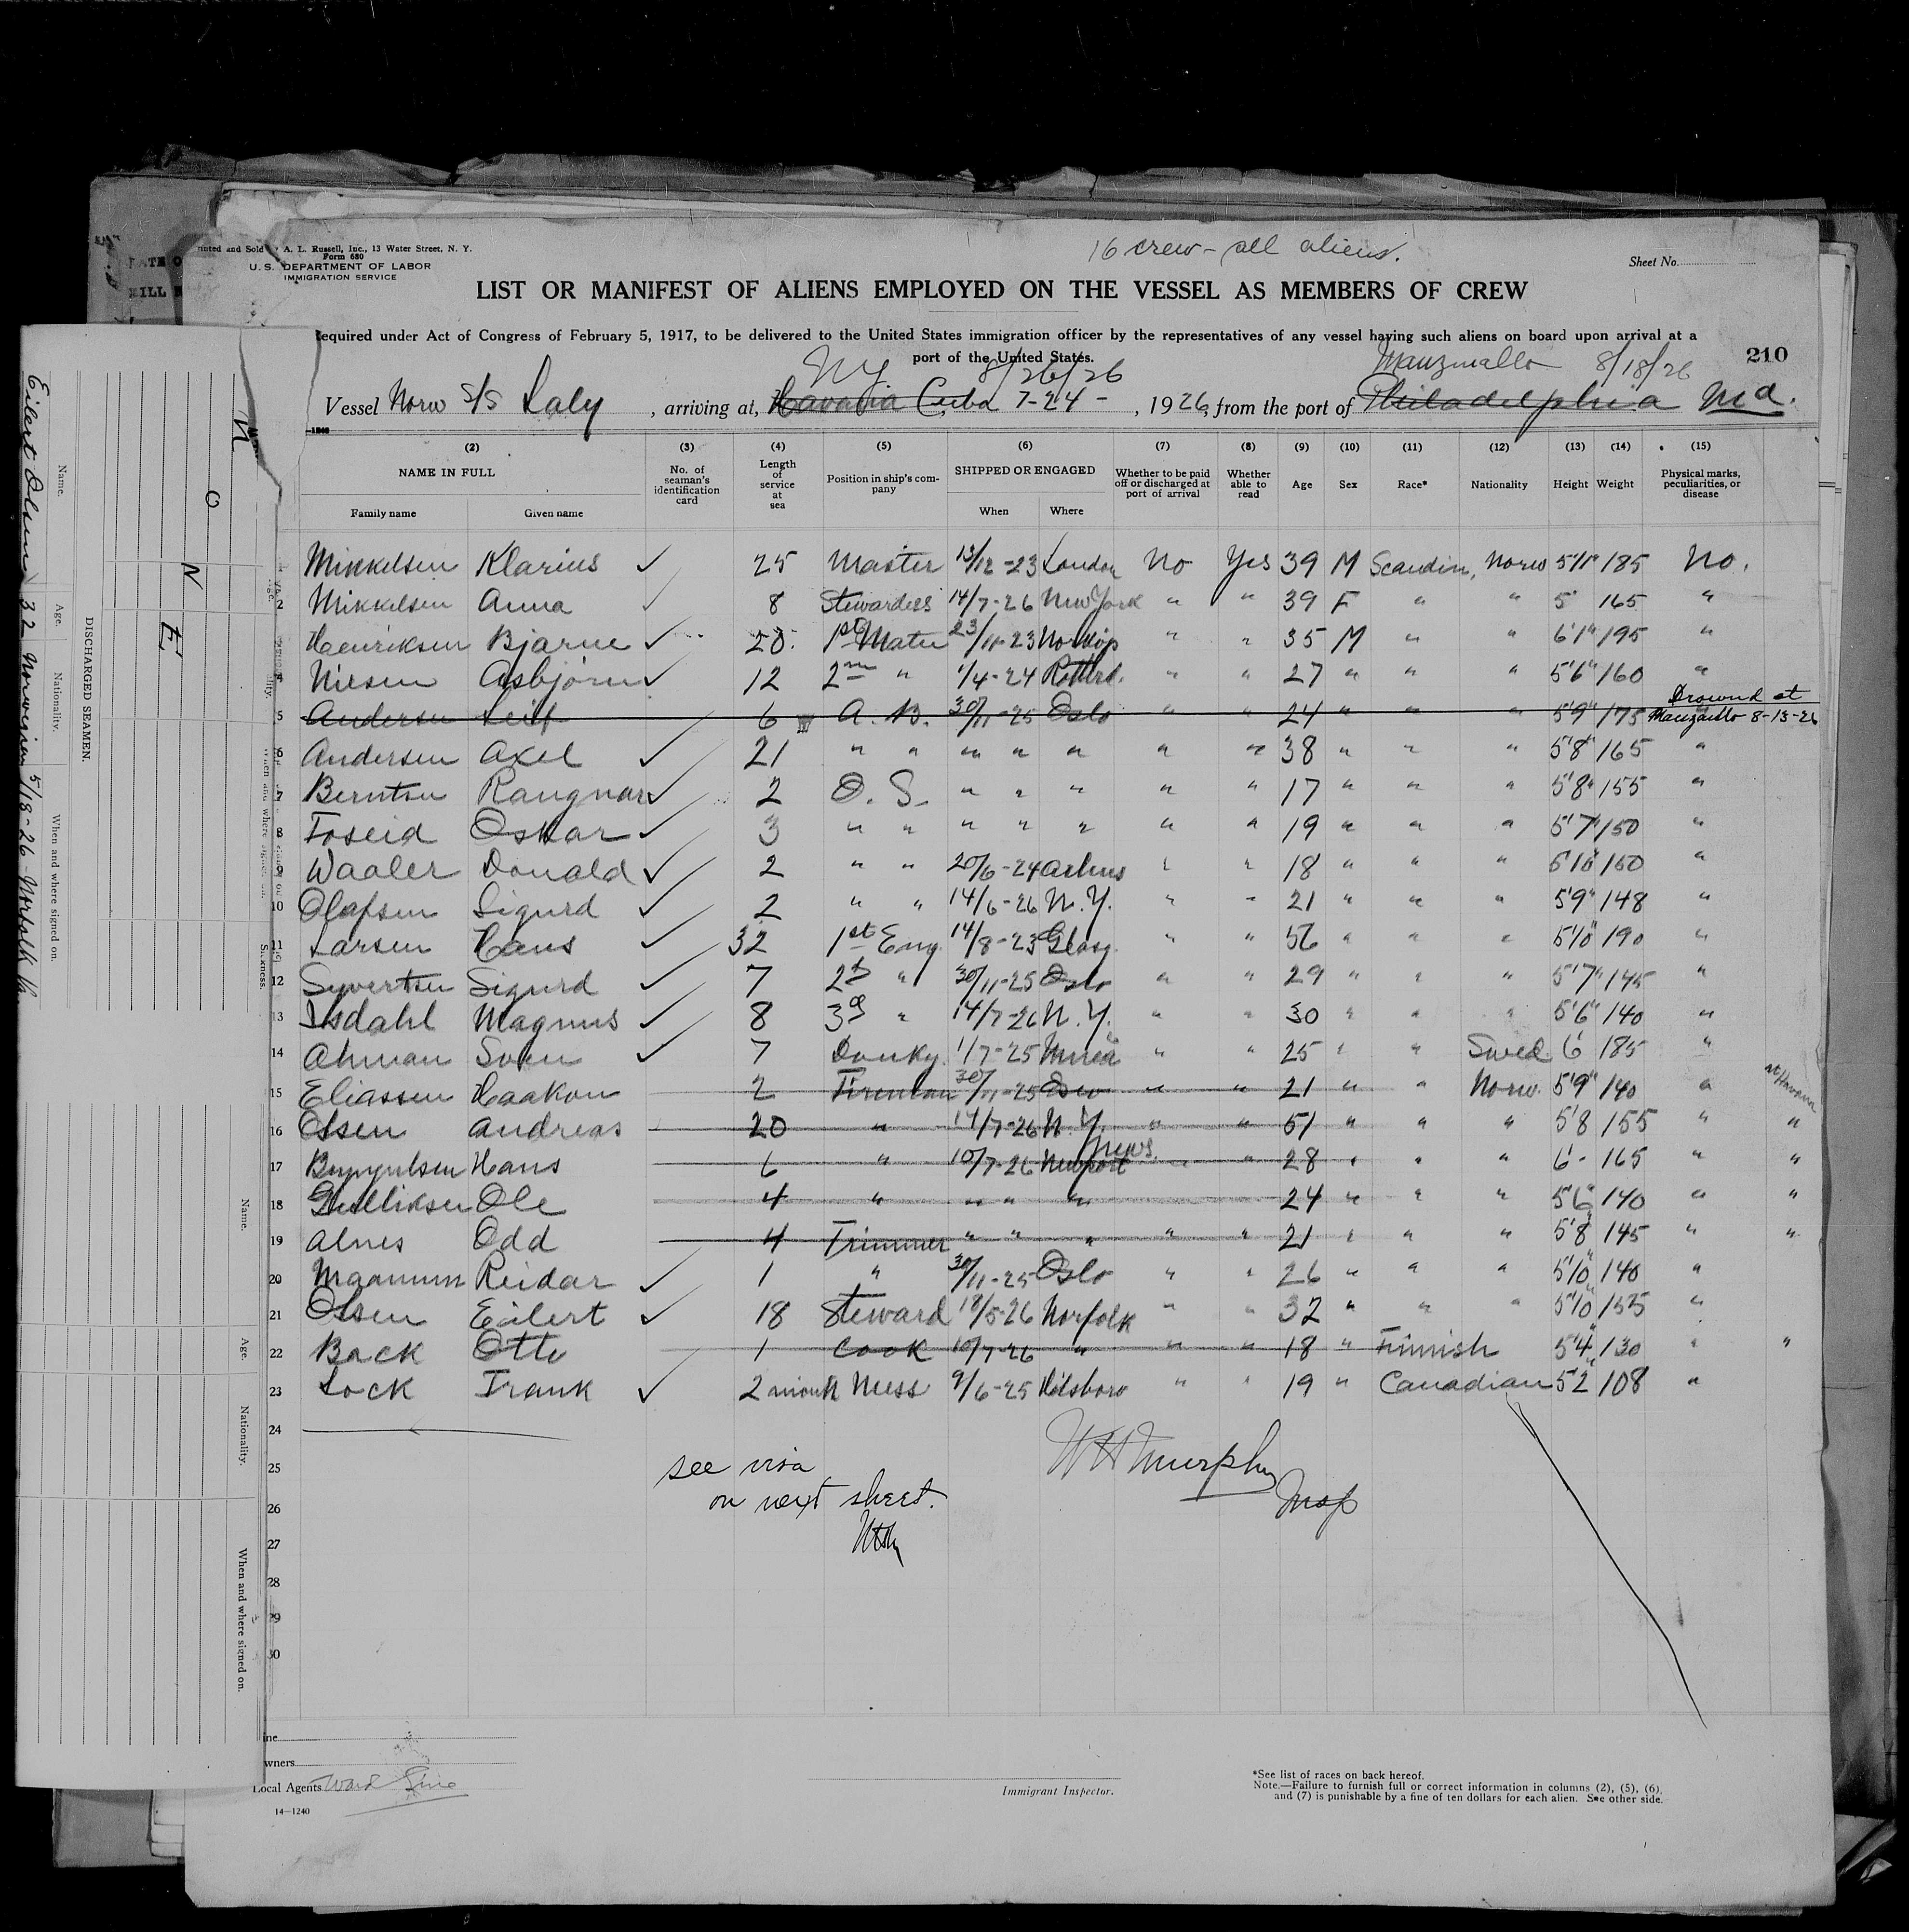 Printed and Sold by A. L. Russell, Inc., 13 Water Street, N. Y.
Form 680
U. S. DEPARTMENT OF LABOR
IMMIGRATION SERVICE
16 crew - all aliens.
Sheet No.
LIST OR MANIFEST OF ALIENS EMPLOYED ON THE VESSEL AS MEMBERS OF CREW
Required under Act of Congress of February 5, 1917, to be delivered to the United States immigration officer by the representatives of any vessel having such aliens on board upon arrival at a
port of the United States.
210
NY 8/26/26 8/18/26
Vessel Norw S/S Laly, arriving at, Havana Cuba 7-24-, 1926, from the port of Philadelphia Md.
(2) (3) (4) (5) (6) (7) (8) (9) (10) (11) (12) (13) (14) (15)
NAME IN FULL No. of seaman's identification card Length of service at sea Position in ship's company SHIPPED OR ENGAGED Whether to be paid off or discharged at port of arrival Whether able to read Age Sex Race* Nationality Height Weight Physical marks, peculiarities, or disease
Family name Given name When Where
Mikkelsen Klarius ✓ 25 Master 13/12-23 London No Yes 39 M Scandin, Norw 5'11" 185 No.
2 Mikkelsen Anna ✓ 8 Stewardess 14/7-26 New York " " 39 F " " 5' 165 "
Henriksen Bjarne ✓ 20. 1st Mate 23/11-23 " " 35 M " " 6'1" 195 "
4 Nilsen Asbjörn ✓ 12 2nd " 1/4-24 Rotterd. " " 27 " " " 5'6" 160 "
Drownd at
5 Andersen Leif 6 A. B. 30/11-25 Oslo " " 24 " " " 5'9" 175 Manzanillo 8-13-26
6 Andersen Axel ✓ 21 " " " " " " " 38 " " " 5'8" 165 "
7 Berntsen Rangnar ✓ 2 O. S. " " " " " 17 " " " 5'8" 155 "
8 Foseid Oskar ✓ 3 " " " " " " " 19 " " " 5'7" 150 "
9 Waaler Donald ✓ 2 " " 20/6-24 Arhus " " 18 " " " 5'10" 150 "
10 Olafsen Sigurd ✓ 2 " " 14/6-26 N.Y. " " 21 " " " 5'9" 148 "
11 Larsen Hans ✓ 32 1st Eng. 14/8-23 Glasg. " " 56 " " " 5'10" 190 "
12 Syvertsen Sigurd ✓ 7 2d " 30/11-25 Oslo " " 29 " " " 5'7" 145 "
13 Isdahl Magnus ✓ 8 3d " 14/7-26 N.Y. " " 30 " " " 5'6" 140 "
14 Ahman Sven ✓ 7 Donky. 1/7-25 " " 25 " " Swed 6' 185 "
15 Eliassen Haakon 2 Fireman 30/11-25 Oslo " " 21 " " Norw. 5'9" 140 " at Havana
16 Olsen Andreas 20 " 14/7-26 N.Y. " " 51 " " " 5'8 155 " "
17 Hans 6 " 10/7-26 Newport News. " " 28 " " " 6'- 165 " "
18 Gulliksen Ole 4 " " " " 24 " " " 5'6" 140 " "
19 Alnes Odd 4 Trimmer " " " " " 21 " " " 5'8 145 " "
20 Reidar ✓ 1 " 30/11-25 Oslo " " 26 " " " 5'10" 140 "
21 Olsen Eilert ✓ 18 Steward 18/5-26 Norfolk " " 32 " " " 5'10" 155 "
22 Back Otto 1 Cook 10/7-26 " " " 18 " Finnish 5'4" 130 " "
23 Lock Frank ✓ 2 month Mess 9/6-25 Hilsboro " " 19 " Canadian 5'2" 108 "
24
25
26
27
28
29
30
see visa
on next sheet.
WHM
WH Murphy
Insp
Owners
Local Agents Ward Line
14—1240
Immigrant Inspector.
*See list of races on back hereof.
Note.—Failure to furnish full or correct information in columns (2), (5), (6),
and (7) is punishable by a fine of ten dollars for each alien. See other side.
DISCHARGED SEAMEN.
Name. Age. Nationality. When and where signed on.
Eilert Olsen 32 Norwegian 5/18-26 Norfolk Va.
N O N E
Sickness.
Name. Age. Nationality. When and where signed on.